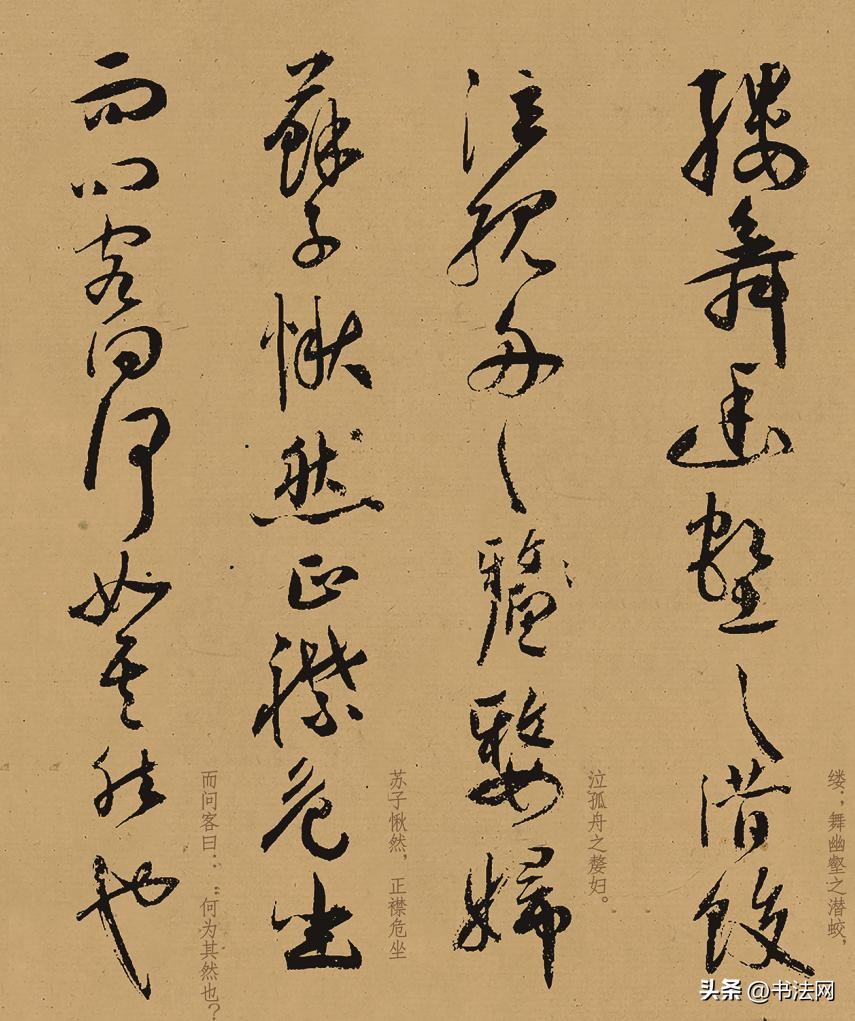 缕；舞幽壑之潜蛟，
縷舞幽壑之潛蛟
泣孤舟之嫠妇。
泣孤舟之嫠嫠婦
苏子愀然，正襟危坐
蘇子愀然正襟危坐
而问客曰：“何为其然也？
而問客曰何為其然也
头条 @书法网